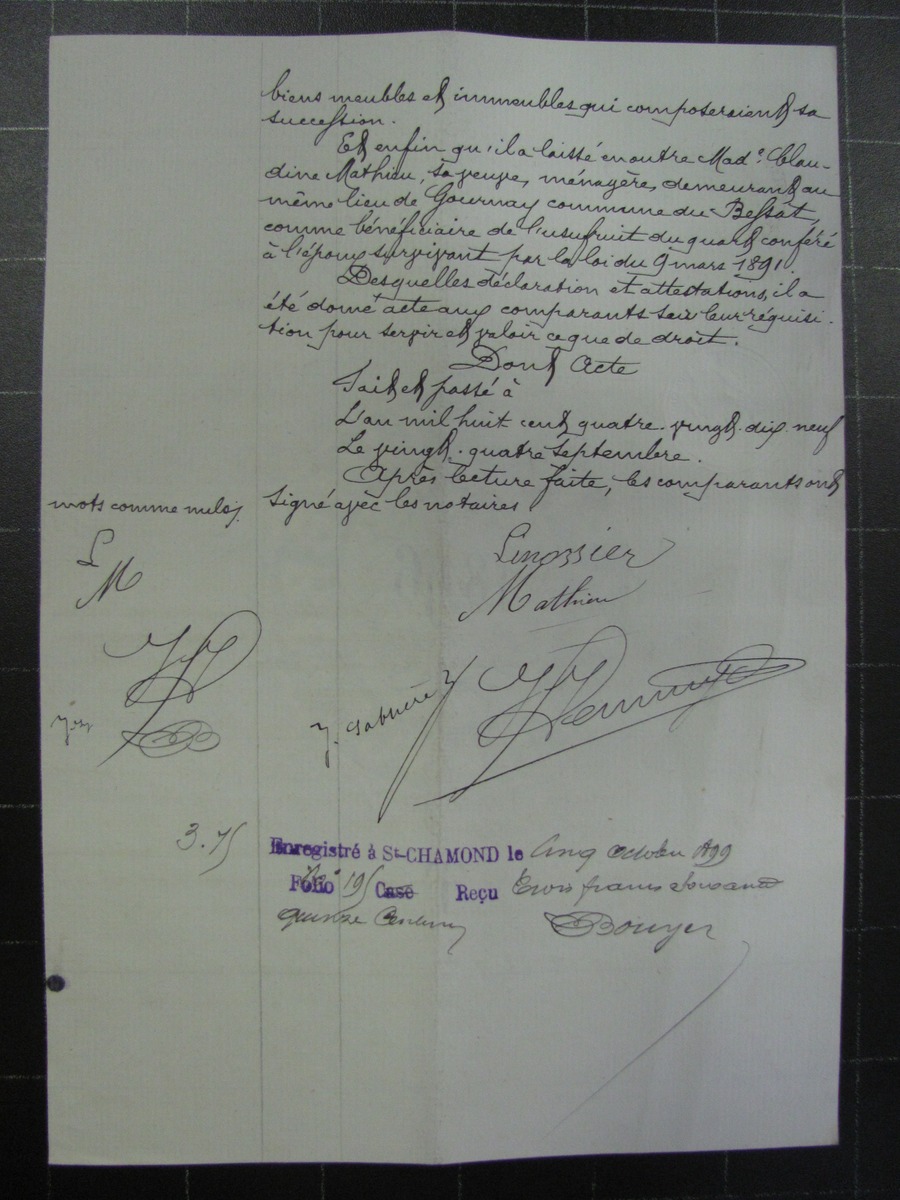 biens meubles et immeubles qui composeraient sa
succession.
Et enfin qu'il a laissé en outre Made Clau-
dine Mathieu, sa veuve, ménagère, demeurant au
même lieu de Gournay commune du Bessat,
comme bénéficiaire de l'usufruit du quart conféré
à l'époux survivant par la loi du 9 mars 1891.
Desquelles déclaration et attestations, il a
été donné acte aux comparants sur leur réquisi-
tion pour servir et valoir ce que de droit.
Dont Acte
Fait et passé à
L'an mil huit cent quatre-vingt-dix-neuf
Le vingt-quatre septembre.
Après lecture faite, les comparants ont
mots comme nuls, signé avec les notaires
L
M
Linossier
Mathieu
3.75
Enregistré à St-CHAMOND le cinq octobre 1899
Folio 195 Case Reçu trois francs soixante
quinze centimes
Bouyer